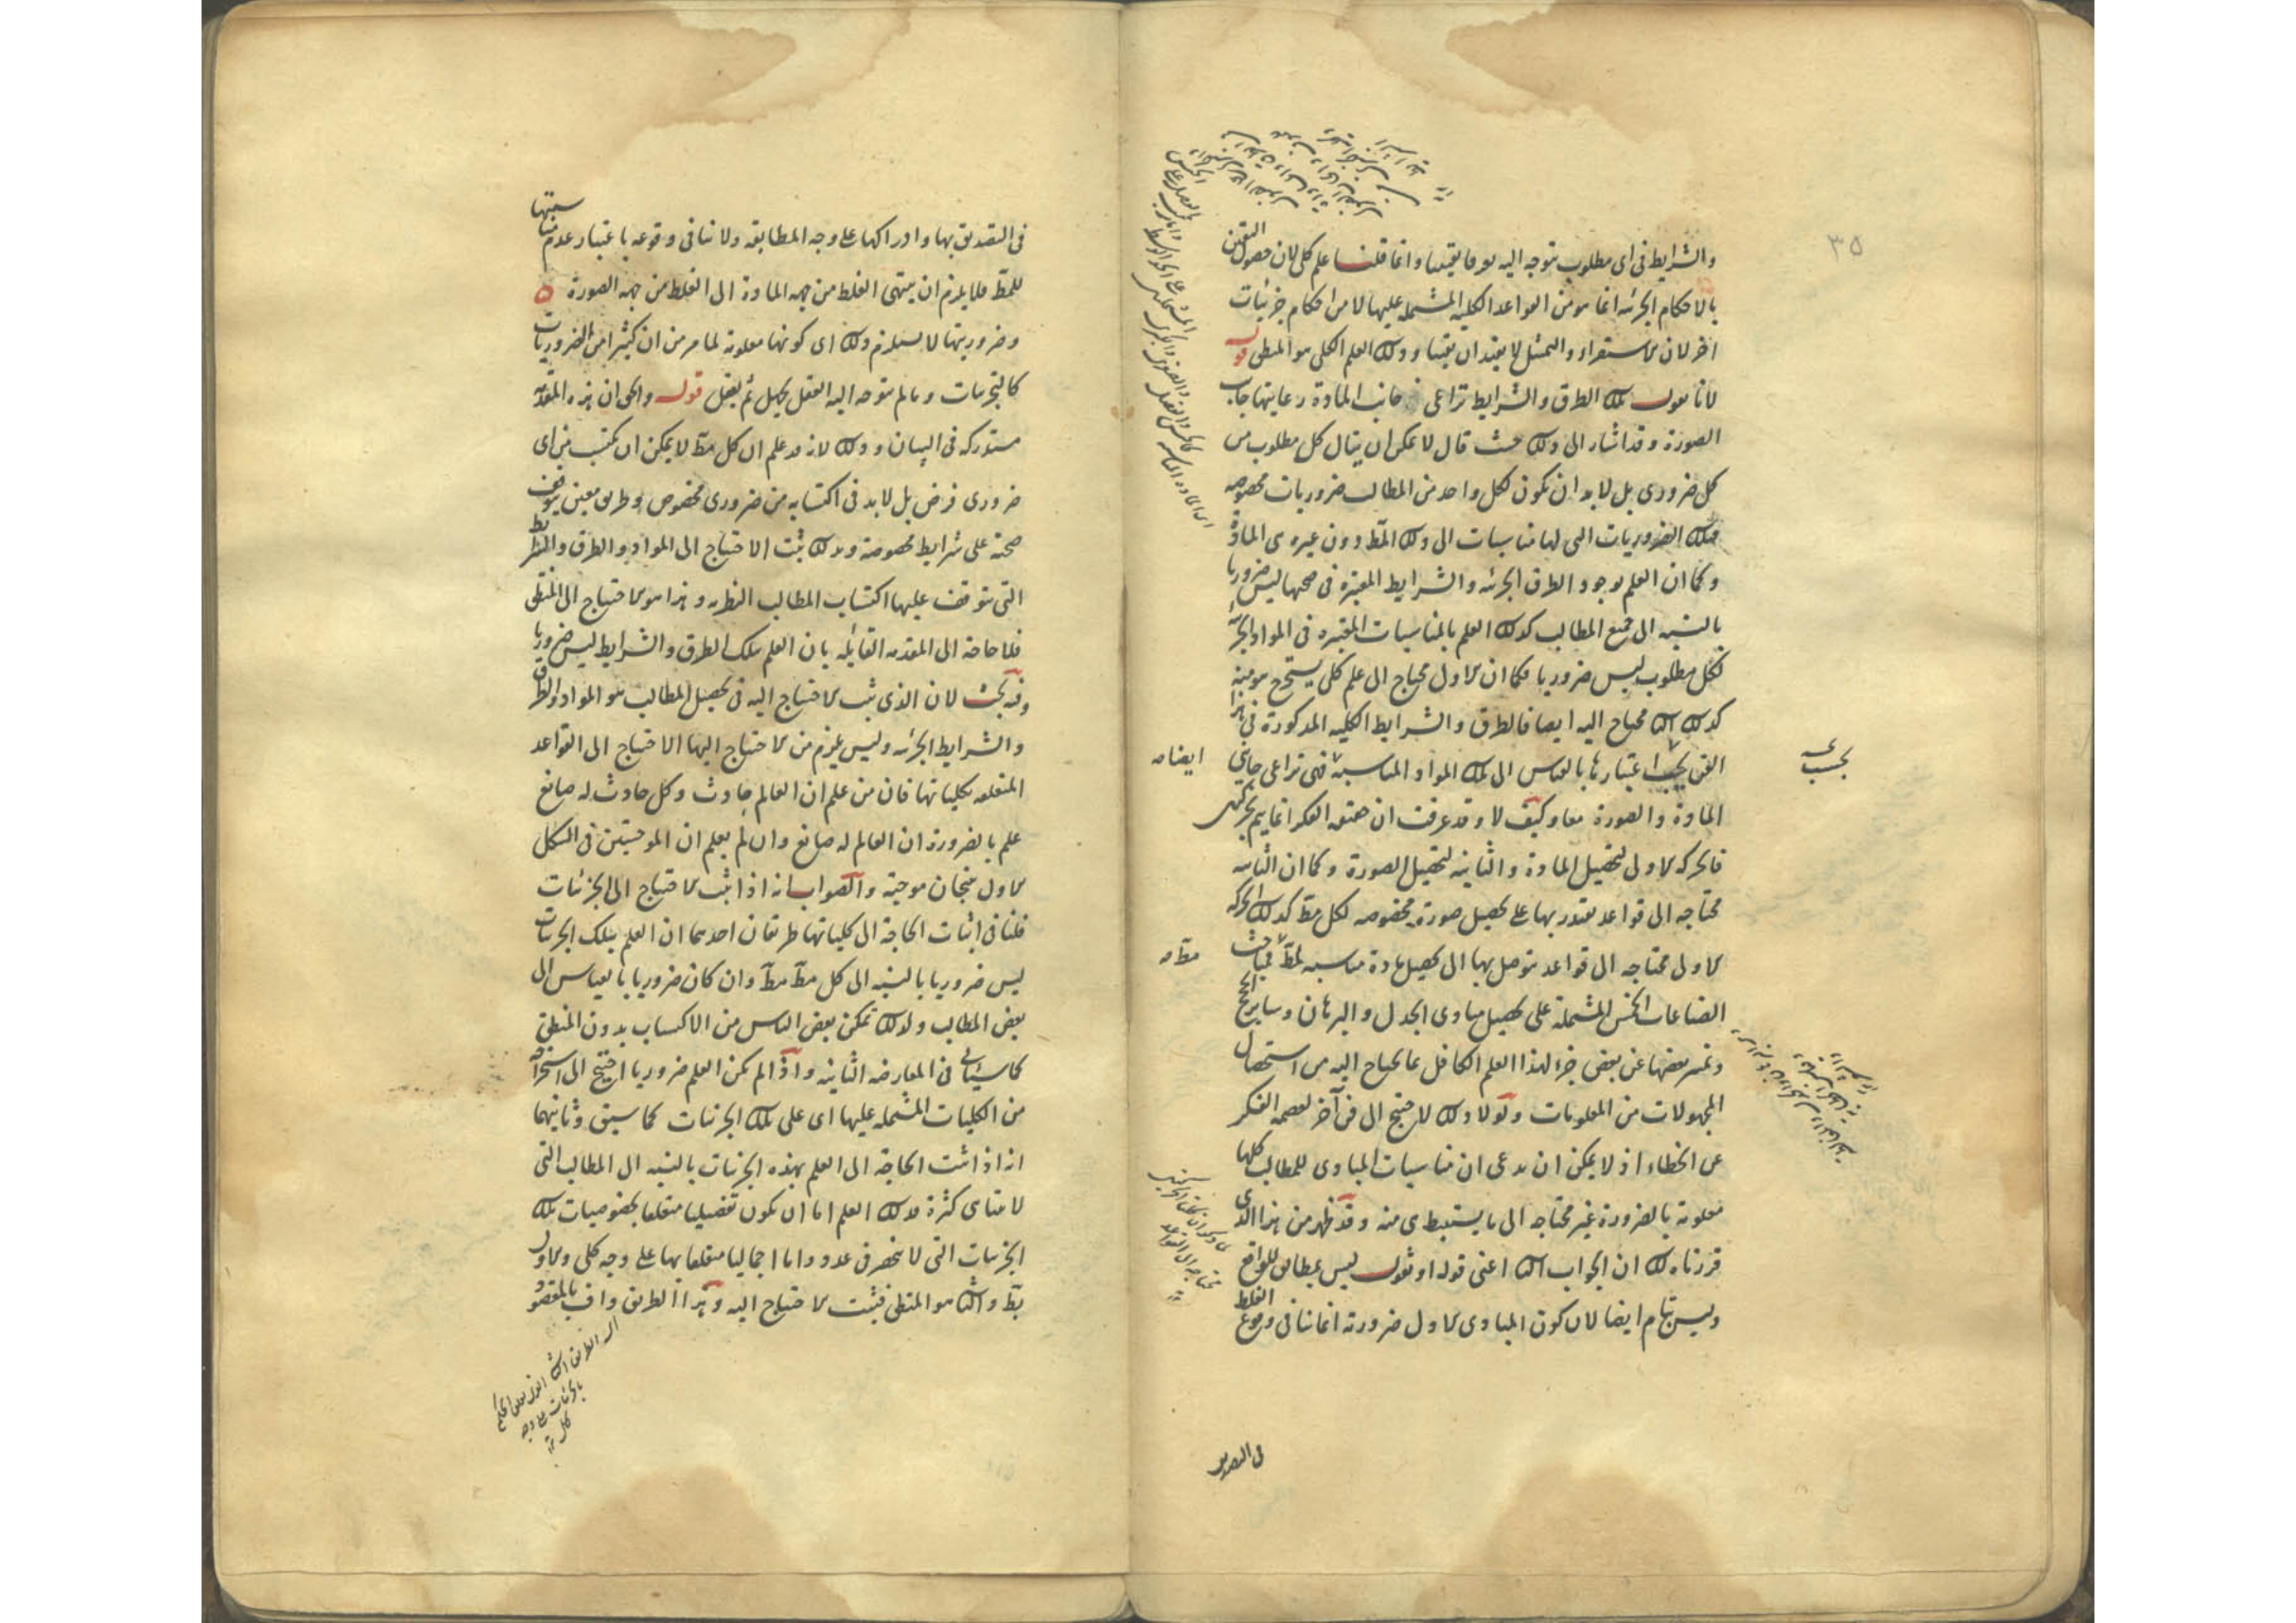 ٣٥
والشرايط فى اى مطلوب يتوجه اليه بوجه يفيدها وانما قلنا علم كلى لان حصول اليقين
بالاحكام الجزئيه انما هو من القواعد الكليه المشتمله عليها لا من احكام جزئيات
اخر لان الاستقراء والتمثل لا يفيدان يقينا وذلك العلم الكلى هو المنطق قوله
لانا نقول تلك الطرق والشرايط تراعى جانب المادة رعايتها جانب
الصورة وقد اشار الى ذلك حيث قال لا يمكن ان ينال كل مطلوب من
كل ضرورى بل لابد ان يكون لكل واحد من المطالب ضروريات مخصوصه
فتلك الضروريات التى لها مناسبات الى ذلك المط دون غيره هى المادة
وكما ان العلم بوجود الطرق الجزئيه والشرايط المعتبرة فى صحتها ليس ضروريا
بالنسبه الى جميع المطالب كذلك العلم بالمناسبات المعتبره فى المواد الجزئية
لكل مطلوب ليس ضروريا فكما ان الاول محتاج الى علم كلى يستخرج هو منه
كذلك الثا محتاج اليه ايضا فالطرق والشرايط الكليه المذكورة فى هذا
الفن يجب اعتبارها بالقياس الى تلك المواد المناسبه فهى تراعى جانبى
المادة والصورة معا وكيف لا وقد عرفت ان حقيقه الفكر انما يتم بحركتين
فالحركه الاولى لتحصيل المادة والثانيه لتحصيل الصورة وكما ان الثانيه
محتاجه الى قواعد يقتدر بها على تحصيل صورة مخصوصه لكل مط كذلك الحركه
الاولى محتاجه الى قواعد يتوصل بها الى تحصيل مادة مناسبه لمط فمباحث
الصناعات الخمس المشتملة على تحصيل مبادى الجدل والبرهان وساير الحجج
وتميز بعضها عن بعض جزء لهذا العلم الكافل بما يحتاج اليه من استحصال
المجهولات من المعلومات ولولا ذلك لاحتيج الى فن آخر لعصمه الفكر
عن الخطاء اذ لا يمكن ان يدعى ان مناسبات المبادى للمطالب كلها
معلومة بالضرورة غير محتاجه الى ما يستنبط هى منه وقد ظهر من هذا الذى
قررناه لك ان الجواب الثا اعنى قوله او نقول ليس بمطابق للواقع
وليس بتام ايضا لان كون المبادى الاول ضرورته انما ينافى وقوع الغلط
بحسب
ايضا صه
مط صه
فى التصديق
فى التصديق بها وادراكها على وجه المطابقه ولا ينافى وقوعه باعتبار عدم مناسبتها
للمط فلا يلزم ان ينتهى الغلط من جهه المادة الى الغلط من جهه الصورة
وضروريتها لا يستلزم ذلك اى كونها معلومة لما مر من ان كثيرا من الضروريات
كالتجربيات وما لم يتوجه اليه العقل يجهل ثم يعقل قوله والحق ان هذه المقدمه
مستدركه فى البيان وذلك لانه قد علم ان كل مط لا يمكن ان يكتسب من اى
ضرورى فرض بل لابد فى اكتسابه من ضرورى مخصوص وطريق معين يتوقف
صحته على شرايط مخصوصة وبذلك يثبت الاحتياج الى المواد والطرق والشرايط
التى يتوقف عليها اكتساب المطالب النظريه وهذا هو الاحتياج الى المنطق
فلا حاجه الى المقدمه القائله بان العلم بتلك الطرق والشرايط ليس ضروريا
وفيه بحث لان الذى يثبت الاحتياج اليه فى تحصيل المطالب هو المواد والطرق
والشرايط الجزئيه وليس يلزم من الاحتياج اليها الاحتياج الى القواعد
المتعلقه بكلياتها فان من علم ان العالم حادث وكل حادث له صانع
علم بالضرورة ان العالم له صانع وان لم يعلم ان الموجبتين فى الشكل
الاول ينتجان موجبة والصواب انه اذا ثبت الاحتياج الى الجزئيات
فلنا فى اثبات الحاجة الى كلياتها طريقان احدهما ان العلم بتلك الجزئيات
ليس ضروريا بالنسبه الى كل مط مط وان كان ضروريا بالقياس الى
بعض المطالب ولذلك تمكن بعض الناس من الاكتساب بدون المنطق
كما سيأتى فى المعارضه الثانيه واذا لم يكن العلم ضروريا احتيج الى استخراجه
من الكليات المشتمله عليها اى على تلك الجزئيات كما سبق وثانيهما
انه اذا ثبت الحاجة الى العلم بهذه الجزئيات بالنسبه الى المطالب التى
لا تتناهى كثرة فذلك العلم اما ان يكون تفصيليا متعلقا بخصوصيات تلك
الجزئيات التى لا تنحصر فى عدد واما اجماليا متعلقا بها على وجه كلى والاول
بط والثا هو المنطق فيثبت الاحتياج اليه وهذا الطريق واف بالمقصود